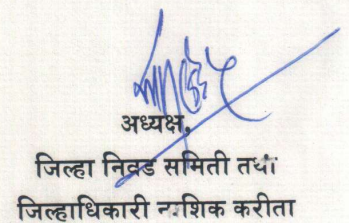 अध्यक्ष,
जिल्हा निवड समिती तथा
जिल्हाधिकारी नाशिक करीता